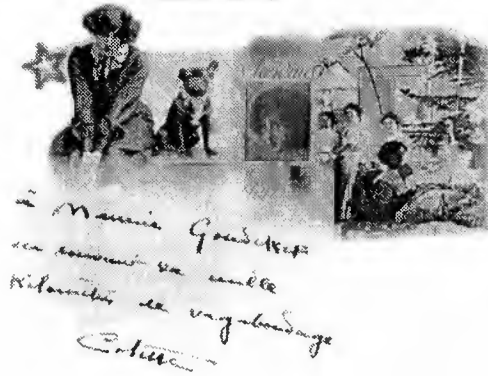 à Maurice Goudeket
en souvenir de mille
Kilomètres de vagabondage
Colette